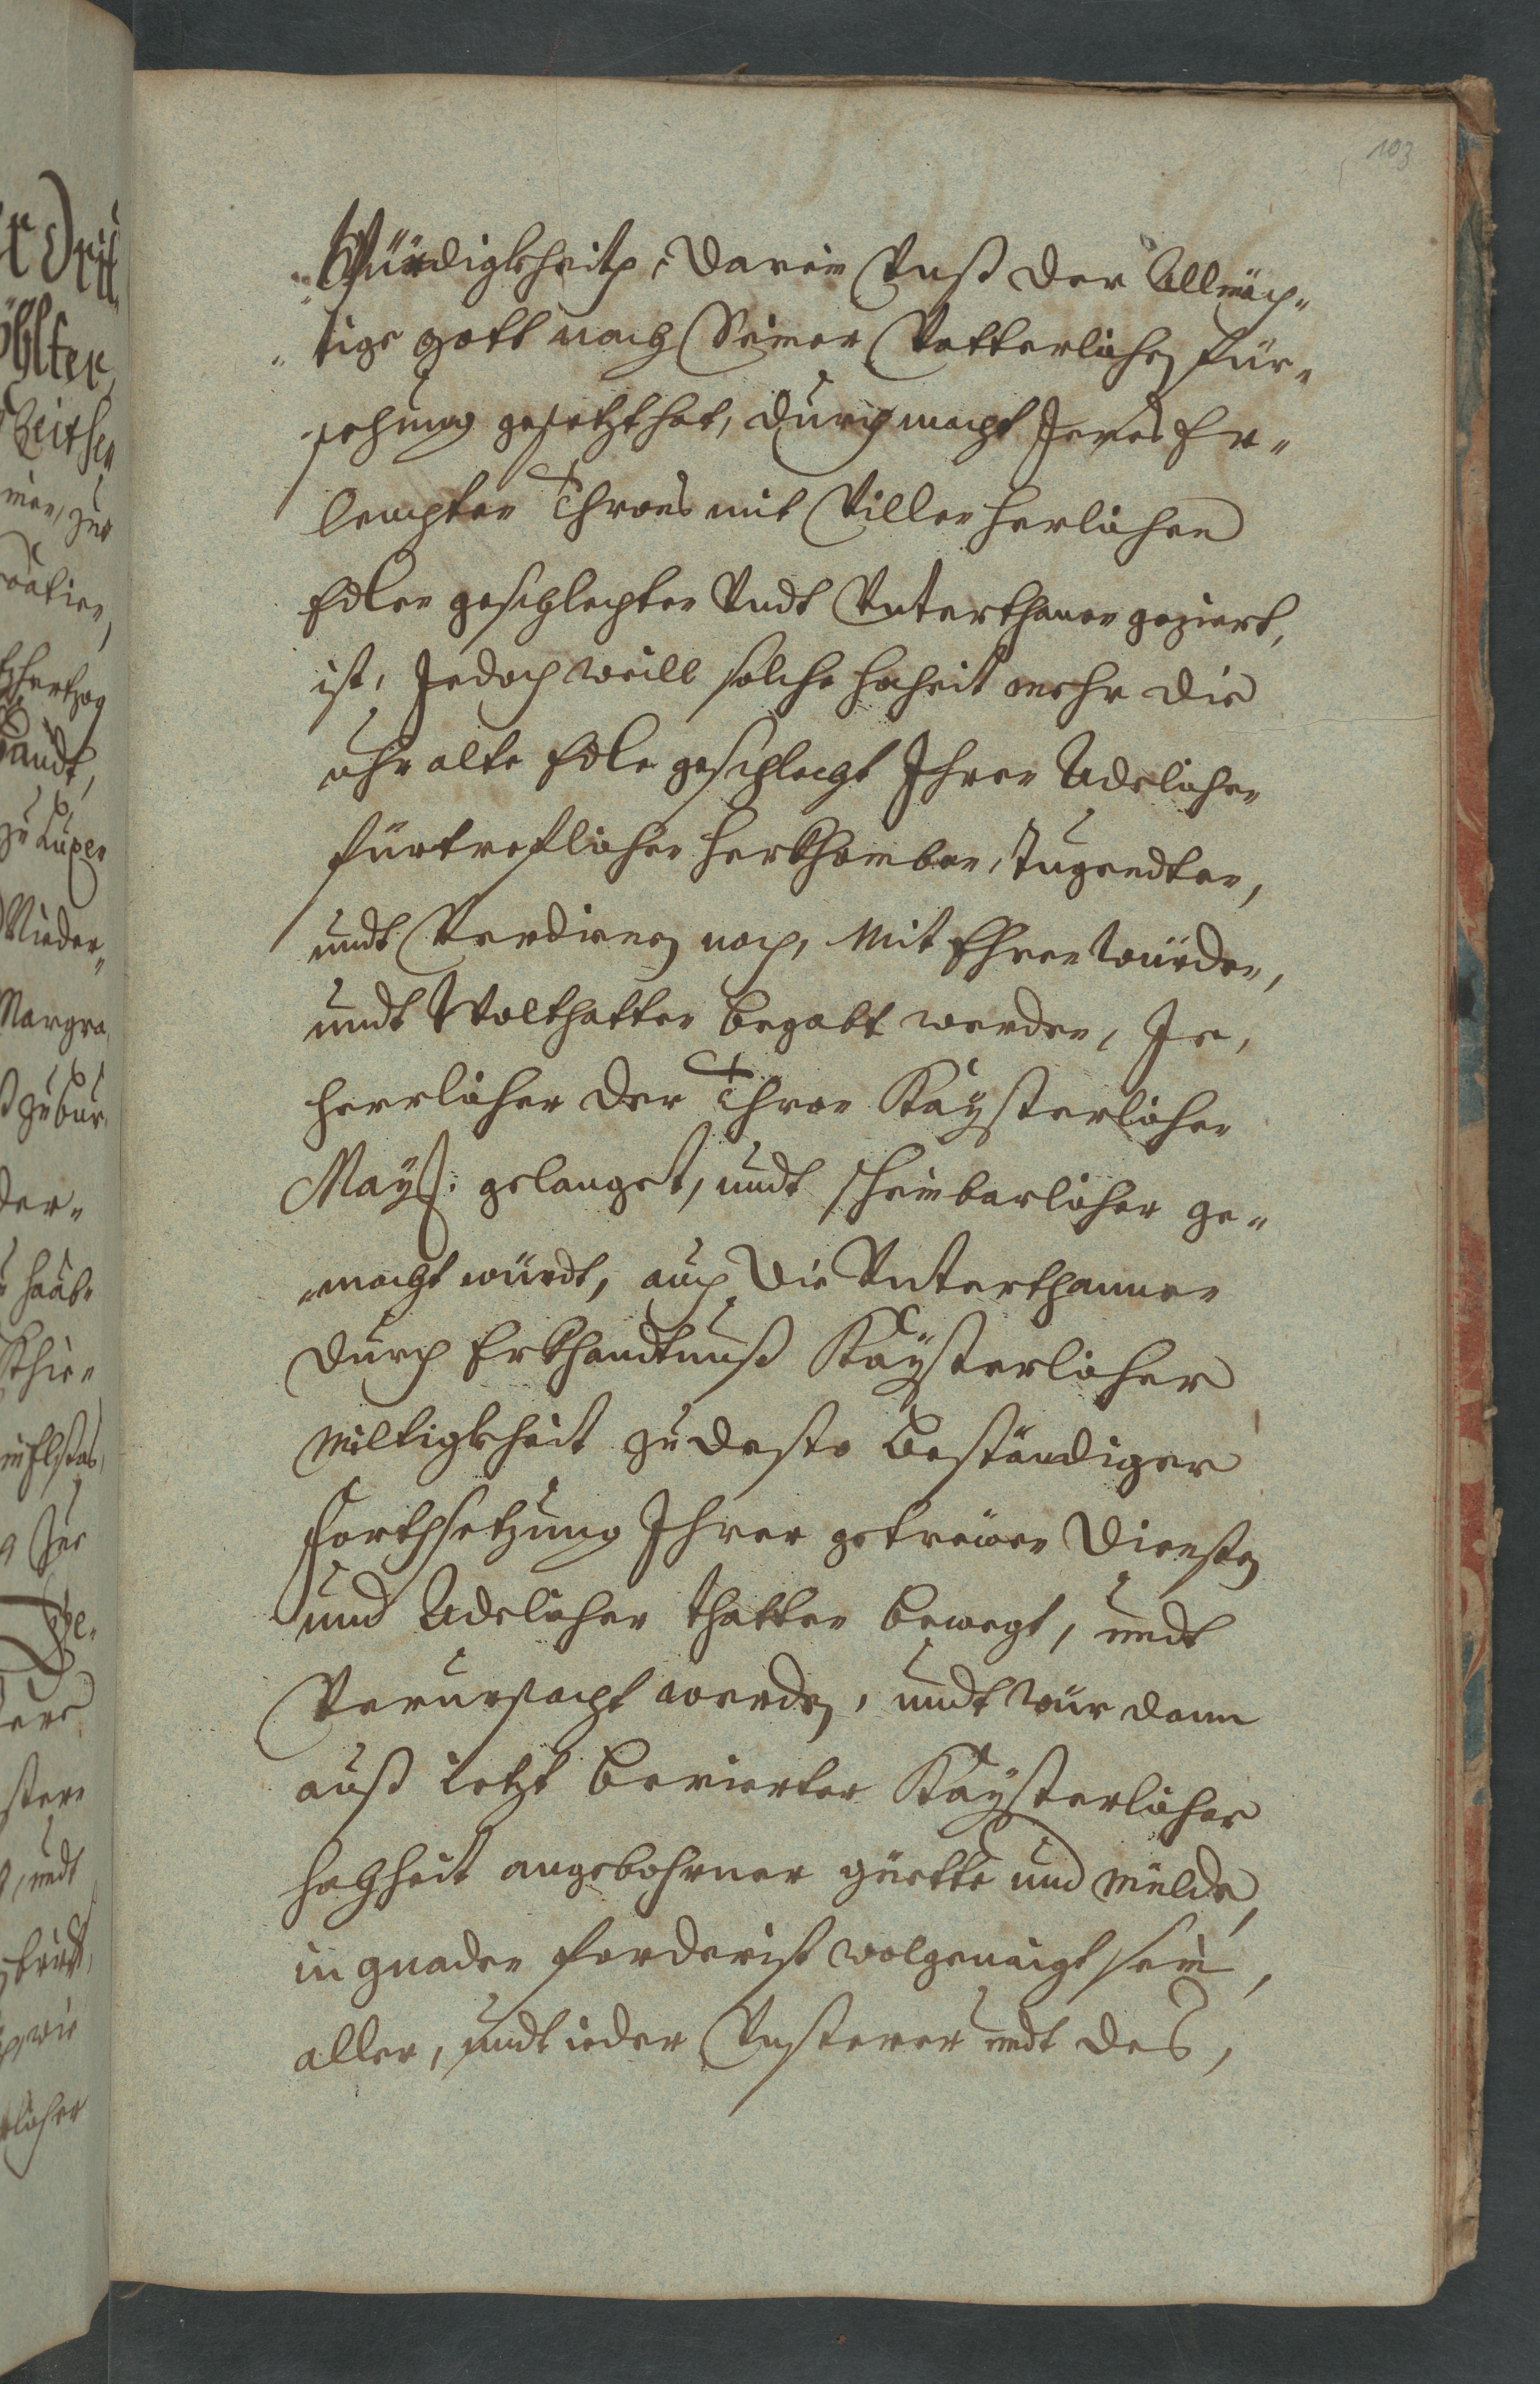 103
Würdigkheitt, darein Vnß der Allmäch„
„tige gott nach Seiner Vatterlichen für„
„sehung gesetzt hat, durch macht Jeres Er„
leuchten Thrones mit Villen herlichen
Edlen geschlechten Vndt Vnterthanen geziert,
ist, Jedoch weill solche hoheit mehr die
uhralte Edle geschlecht Jhren Adelichen
fürtreflichen herkhomben, Tugendten,
undt Verdienen nach, Mit Ehren würden,
undt Wolthatten begabt werden, Je,
herrlicher der Thron Kaÿsterlicher
Maÿt: gelanget, undt scheinbarlicher ge„
„macht würdt, auch die Vnterthannen
durch Erkhandtnuß Kaÿsterlicher
Miltigkheit zu desto beständiger
forthsetzung Jhrer getreüen diensten
und Adelicher thatten bewegt, undt
Verursacht werden, undt wür dann
auß ietzt berierter Kaÿsterlicher
hochheit angebohrner güette und Milde,
in gnaden forderist wolgenaigt sein,
aller, undt ieder Vnsterer undt des,